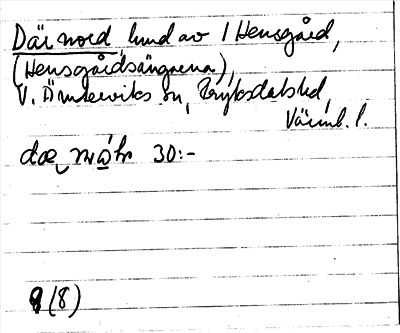 Där nord, lund av 1 Hensgård,
(Hensgårdsängarna),
V. Ämterviks sn, Fryksdals hd,
Värml. l.
30:-
9 (8)